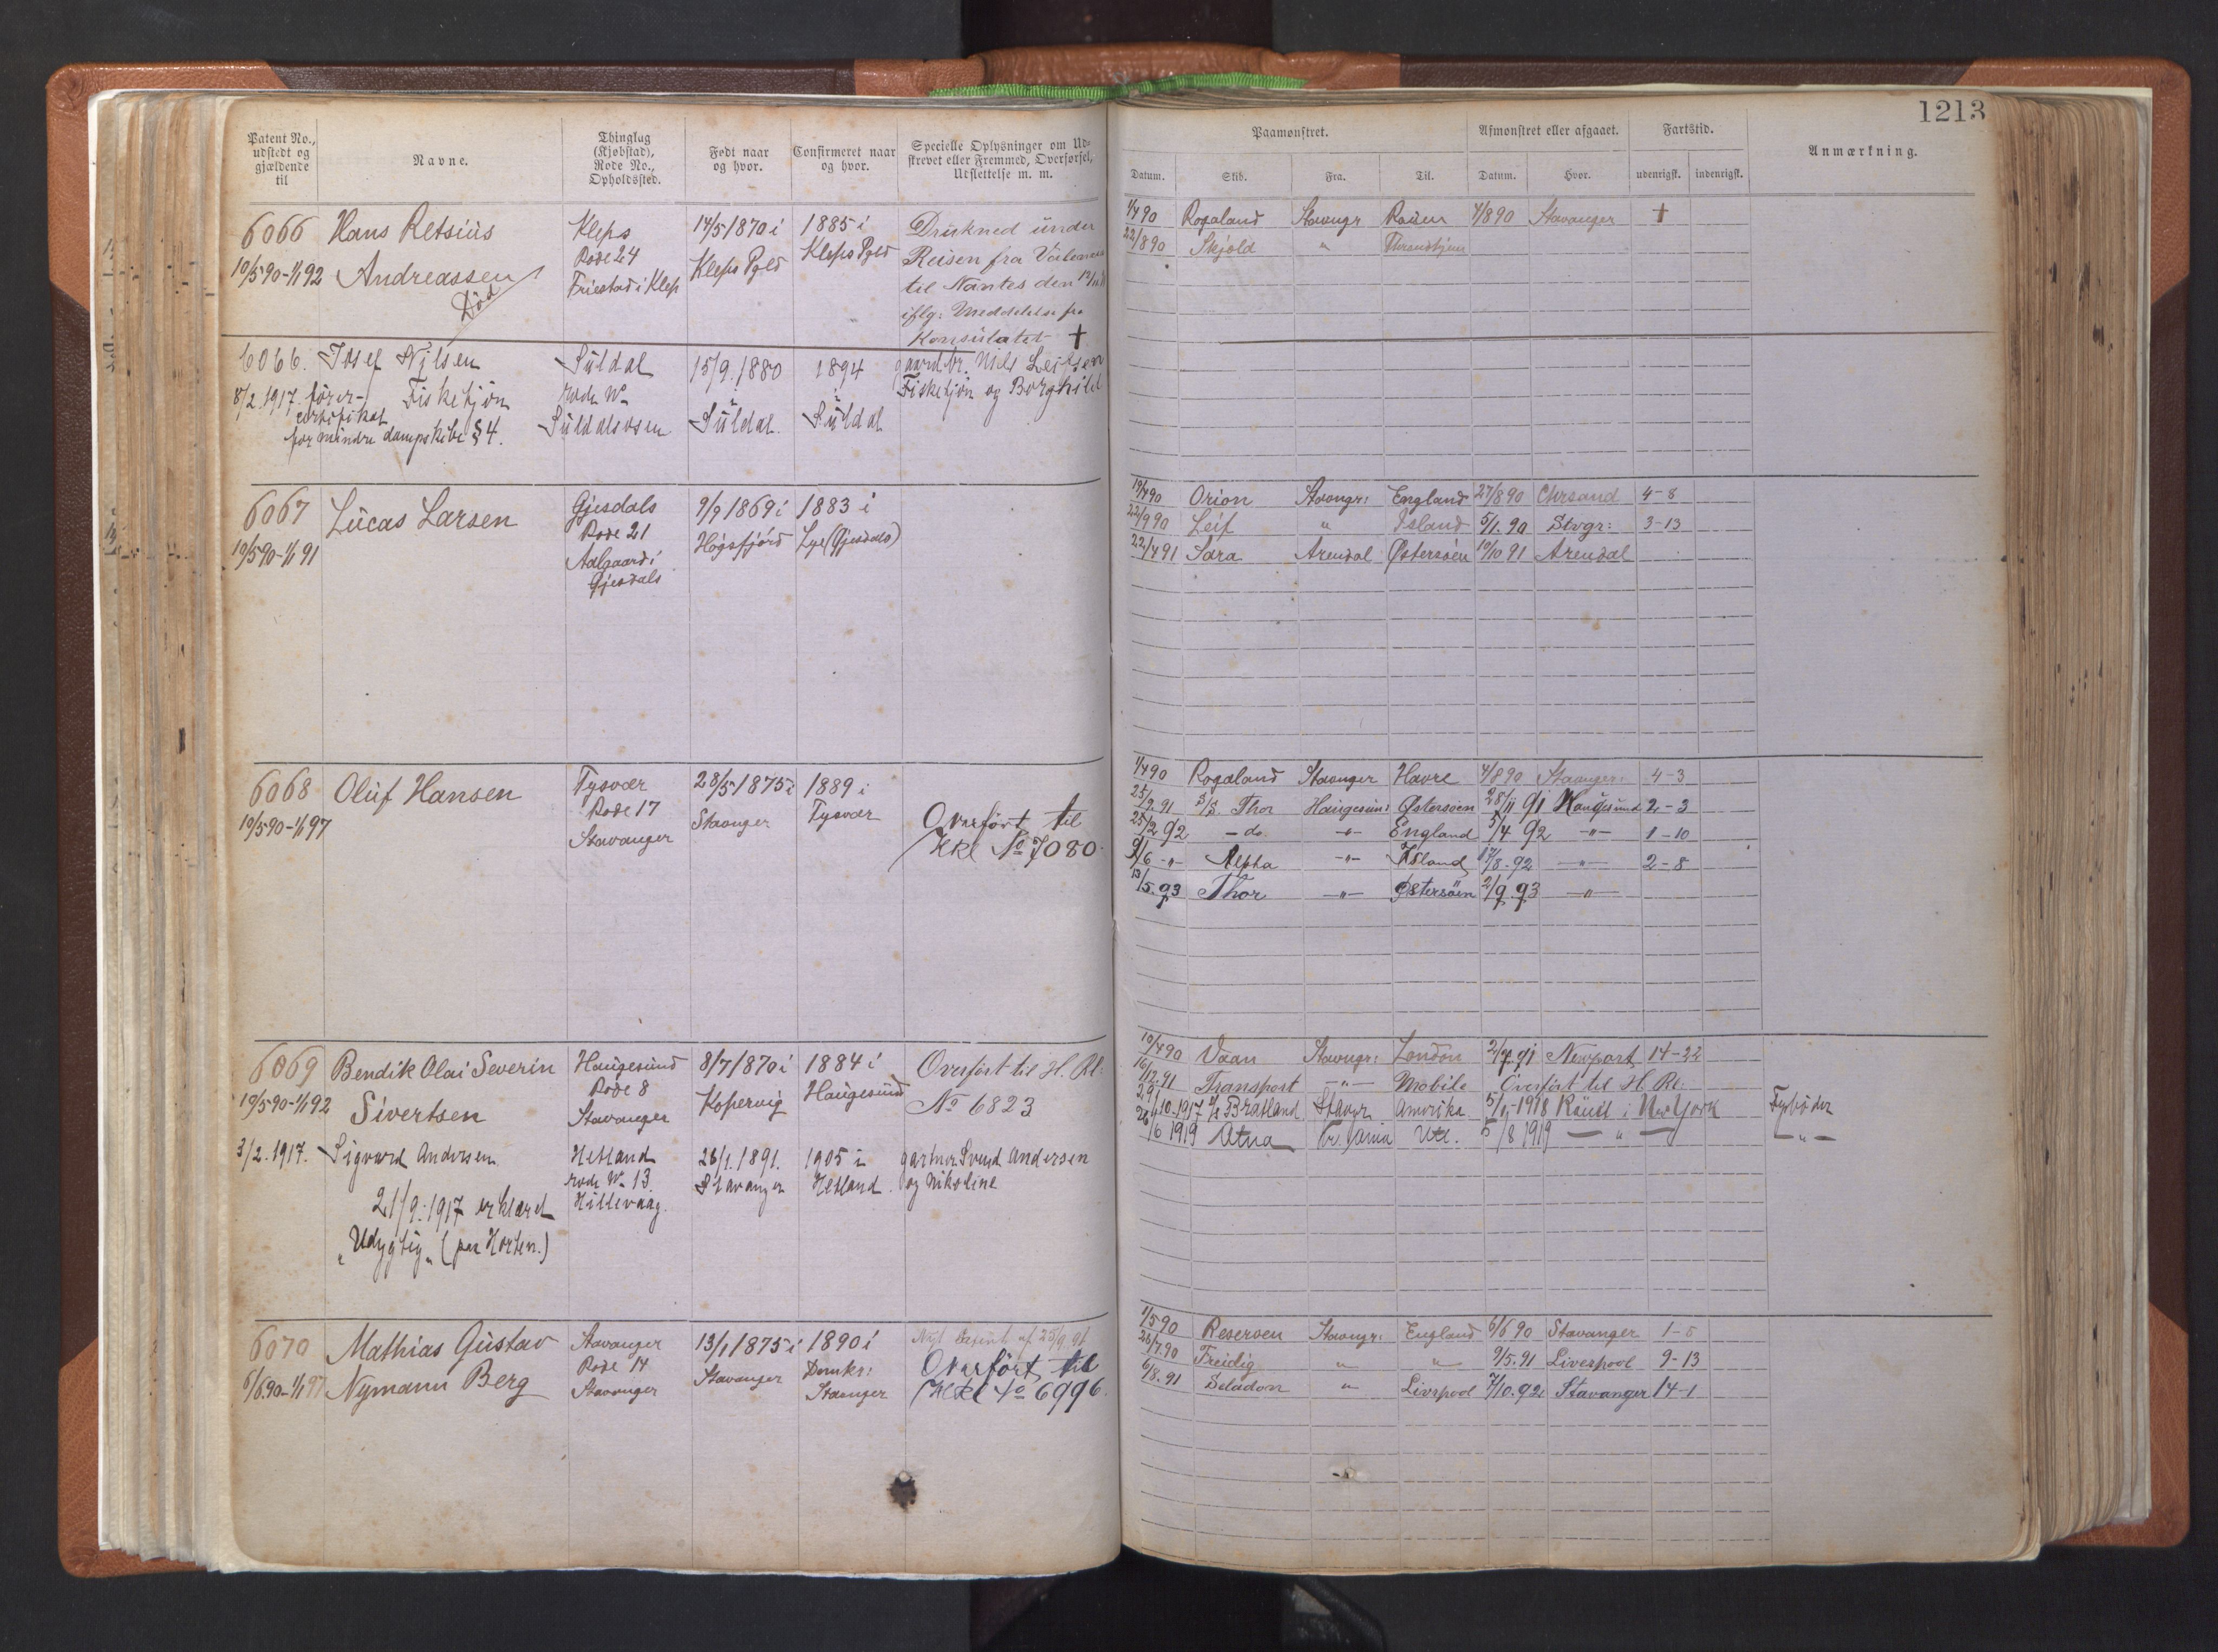 1213
Patent No., udstedt og gjældende til
Navne.
Thinglag (Kjøbstad), Rode No., Opholdssted.
Født naar og hvor.
Confirmeret naar og hvor.
Specielle Oplysninger om Udskrevet eller Fremmed, Overførsel, Udslettelse m. m.
Paamønstret.
Afmønstret eller afgaaet.
Fartstid.
Anmærkning.
Datum.
Skib.
Fra.
Til.
Datum.
Hvor.
udenrigsk.
indenrigsk.
6066
10/5 90-1/1 92
Hans Retsius
Andreassen
Død
Kleps
Rode 24
Friestad i Klep
14/5 1870 i
Kleps Pgld
1885 i
Kleps Pgld
Drukned under
Reisen fra
til Nantes den
iflg: Meddelelse fra
Konsulatet †
1/4 90 Rogaland Stavngr Rouen 4/8 90 Stavanger †
22/8 90 Skjold " Throndhjem
6066.
8/2 1917. fører-
certifikat
for mindre dampskibe § 4.
Josef Nilsen
Fisketjön
Suldal
rode No
Suldalsosen
15/9. 1880
i
Suldal.
1894
i
Suldal
gaardbr. Nils Leifsen
Fisketjön og Borghild
6067
10/5 90-1/1 91
Lucas Larsen
Gjesdals
Rode 21
Aalgaard i
Gjesdals
9/9 1869 i
Høgsfjord
1883 i
Lye (Gjesdals)
19/4 90 Orion Stavngr: England 27/8 90 Chrsand 4-8
22/9 90 Leif " Island 5/1. 90 Stvgr: 3-13
22/4 91 Sara Arendal Østersøen 10/10 91 Arendal
6068
10/5 90-1/1 97
Oluf Hansen
Tysvær
Rode 17
Stavanger
28/5 1875 i
Stavnger
1889 i
Tysvær
Overført til
Hkl No 7080.
1/4 90 Rogaland Stavnger Havre 4/8 90 Stavnger: 4-3
25/9. 91 S/S. Thor Haugesun: Østersøen 28/11 91 Haugesund 2-3
25/2 92 - do. -"- England 5/4 92 -"- 1-10
9/6 -"- Alpha -"- Island 17/8. 92 -"- 2-8
13/5. 93 Thor -"- Østersøen 2/9. 93 -"-
6069
10/5 90-1/1 92
Bendik Olai Severin
Sivertsen
Haugesund
Rode 8
Stavanger
8/7 1870 i
Kopervig
1884 i
Haugesund
Overført til H. Rl:
No 6823
10/4 90 Vaan Stavngr: London 91 Newport 14-22
16/12. 91 Transport -"- Mobile Overført til H Rl:
3/2. 1917.
Sigvard Andersen
21/9. 1917 erklæret
"Udygtig" (paa Horten.)
Hetland
rode No 13.
Hillevaag.
26/1. 1891.
Stavanger
1905 i
Hetland.
gartner Svend Andersen
og Nikoline
29/10. 1917 Bratland Stavgr Amerika 1918 New York Fyrbøder
26/6 1919 Atna Kr.jania Utl. 5/8 1919 -"- -"-
6070
6/6 90-1/1 97
Mathias Gustav
Nymann Berg
Stavanger
Rode 14
Stavanger
13/1 1875 i
Stavanger
1890 i
Domkr:
Stavnger
Nyt Patent af 25/9. 91.
Overført til
Hkl No 6996.
1/5 90 Reserven Stavngr: England 6/6 90 Stavanger 1-5
28/7 90 Freidig " " 9/5. 91 Liverpool 9-13
6/8. 91 Seladon " Livrpool 7/10. 92 Stavanger 14-1